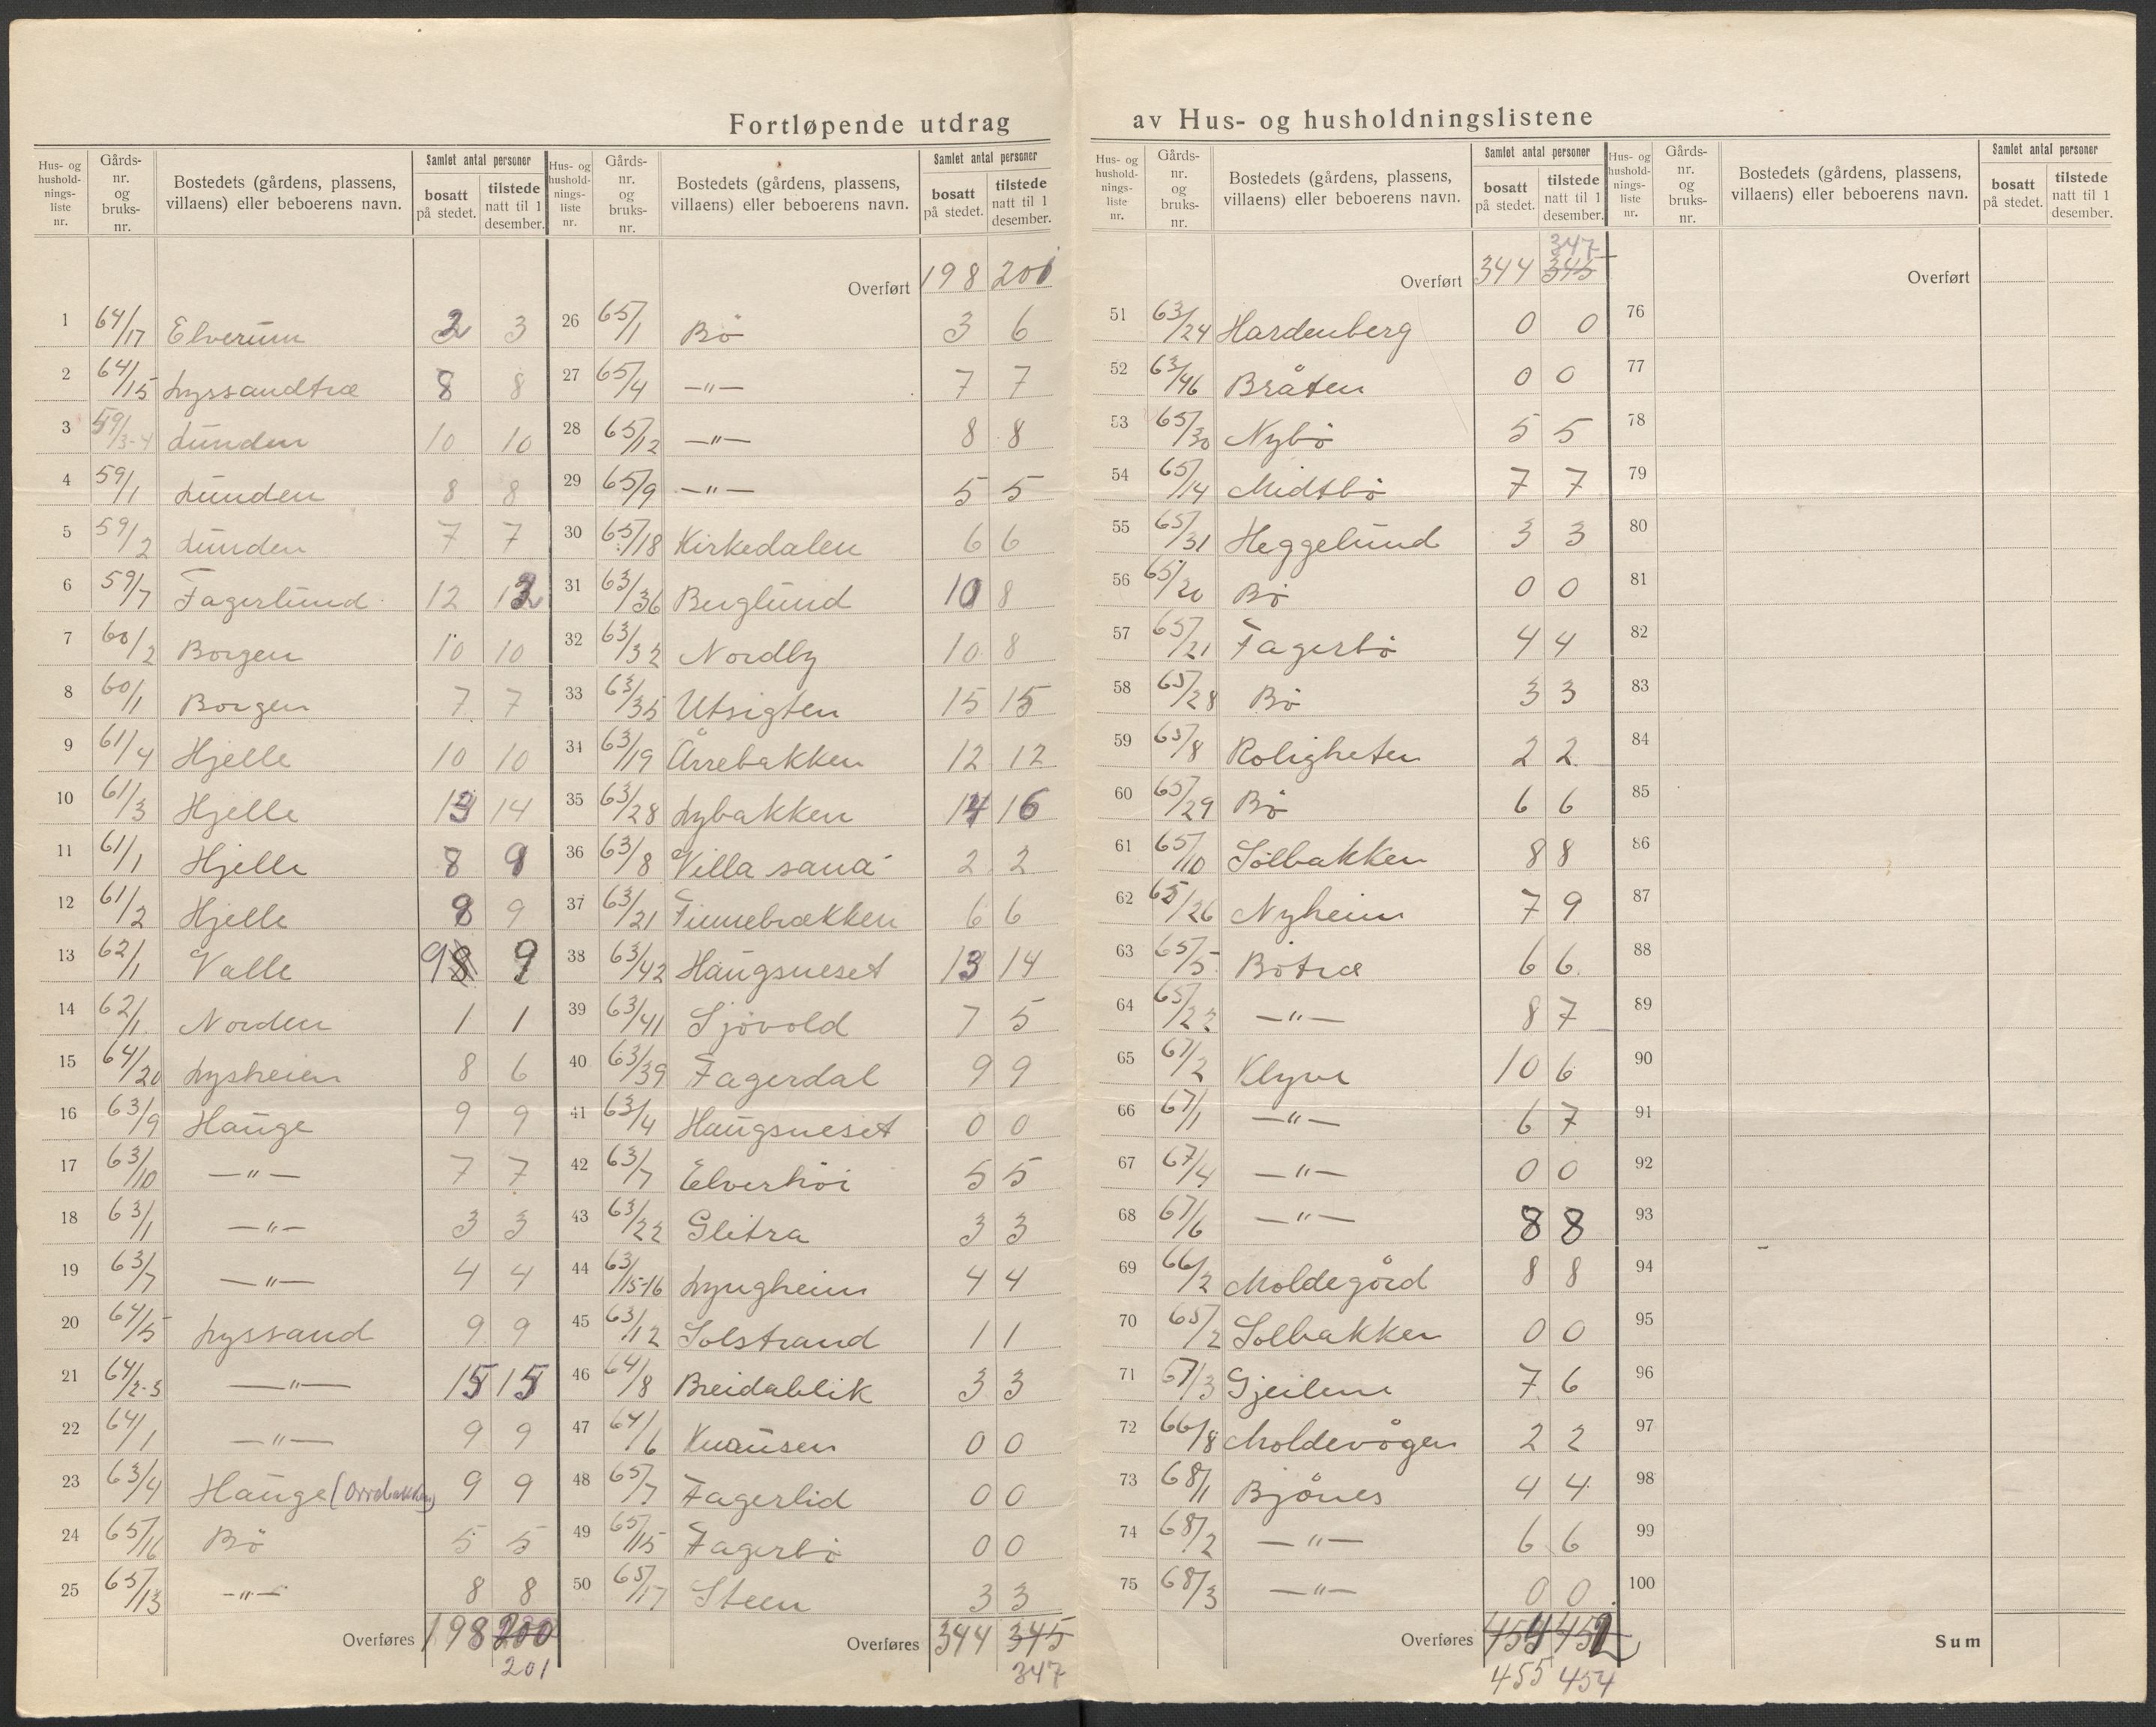 Fortløpende utdrag av Hus- og husholdningslistene
Hus- og hushold-nings-liste nr. Gårds-nr. og bruks-nr. Bostedets (gårdens, plassens, villaens) eller beboerens navn. Samlet antal personer bosatt på stedet. tilstede natt til 1 desember.
1 64/17 Elverum 2 3
2 64/15 Lyssandtræ 8 8
3 59/3-4 Lunden 10 10
4 59/1 Lunden 8 8
5 59/2 Lunden 7 7
6 59/7 Fagerlund 12 12
7 60/2 Borgen 10 10
8 60/1 Borgen 7 7
9 61/4 Hjelle 10 10
10 61/3 Hjelle 13 14
11 61/1 Hjelle 8 9
12 61/2 Hjelle 8 9
13 62/1 Valle 9 8 9
14 62/1 Norden 1 1
15 64/20 Lysheim 8 6
16 63/9 Hauge 9 9
17 63/10 —"— 7 7
18 63/1 —"— 3 3
19 63/7 —"— 4 4
20 64/5 Lyssand 9 9
21 64/2-3 —"— 15 15
22 64/1 —"— 9 9
23 63/4 Hauge (Orrebakken) 9 9
24 65/16 Bö 5 5
25 65/13 —"— 8 8
Overføres 198 200
201
Hus- og hushold-nings-liste nr. Gårds-nr. og bruks-nr. Bostedets (gårdens, plassens, villaens) eller beboerens navn. Samlet antal personer bosatt på stedet. tilstede natt til 1 desember.
Overført 198 201
26 65/1 Bö 3 6
27 65/4 —"— 7 7
28 65/12 —"— 8 8
29 65/9 —"— 5 5
30 65/18 Kirkedalen 6 6
31 63/36 Berglund 10 8
32 63/32 Nordby 10 8
33 63/35 Utsigten 15 15
34 63/19 Årrebakken 12 12
35 63/28 Lybakken 14 16
36 63/8 Villa sana 2 2
37 63/21 Finnebrækken 6 6
38 63/42 Haugsneset 13 14
39 63/41 Sjövold 7 5
40 63/39 Fagerdal 9 9
41 63/4 Haugsneset 0 0
42 63/7 Elverhöi 5 5
43 63/22 Glitra 3 3
44 63/15-16 Lyngheim 4 4
45 63/12 Solstrand 1 1
46 64/8 Breidablik 3 3
47 64/6 Knausen 0 0
48 65/7 Fagerlid 0 0
49 65/15 Fagerbö 0 0
50 65/17 Steen 3 3
Overføres 344 345
347
Hus- og hushold-nings-liste nr. Gårds-nr. og bruks-nr. Bostedets (gårdens, plassens, villaens) eller beboerens navn. Samlet antal personer bosatt på stedet. tilstede natt til 1 desember.
347
Overført 344 345
51 63/24 Hardenberg 0 0
52 63/46 Bråten 0 0
53 65/30 Nybö 5 5
54 65/14 Midtbö 7 7
55 65/31 Heggelund 3 3
56 65/20 Bö 0 0
57 65/21 Fagerbö 4 4
58 65/28 Bö 3 3
59 65/8 Roligheten 2 2
60 65/29 Bö 6 6
61 65/10 Solbakken 8 8
62 65/26 Nyheim 7 9
63 65/5 Bötræ 6 6
64 65/22 —"— 8 7
65 67/2 Klyve 10 6
66 67/1 —"— 6 7
67 67/4 —"— 0 0
68 67/6 —"— 8 8
69 66/2 Moldegård 8 8
70 65/2 Solbakken 0 0
71 67/3 Gjeilene 7 6
72 66/8 Moldevågen 2 2
73 68/1 Bjönes 4 4
74 68/2 —"— 6 6
75 68/3 —"— 0 0
Overføres 454 452
455 454
Hus- og hushold-nings-liste nr. Gårds-nr. og bruks-nr. Bostedets (gårdens, plassens, villaens) eller beboerens navn. Samlet antal personer bosatt på stedet. tilstede natt til 1 desember.
Overført
76
77
78
79
80
81
82
83
84
85
86
87
88
89
90
91
92
93
94
95
96
97
98
99
100
Sum